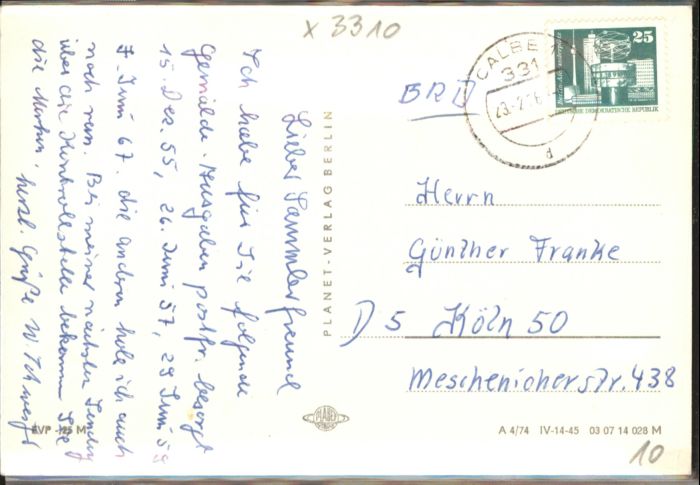 x 3310
Lieber Sammlerfreund
Ich habe für Sie folgende
Gemälde-Ausgaben postfr. besorgt
15. Dez. 55, 26. Juni 57, 29 Juni 59
7. Juni 67. die anderen hole ich auch
noch ran. Bei meiner nächsten Sendung
über die Kontrollstelle bekommen Sie
die Marken, herzl. Grüße W.
EVP -,25 M
PLANET-VERLAG BERLIN
CALBE
331
d
25
DEUTSCHE DEMOKRATISCHE REPUBLIK
BRD
Herrn
Günther Franke
D 5 Köln 50
Meschenicherstr. 438
PLANET
A 4/74 IV-14-45 03 07 14 028 M
10